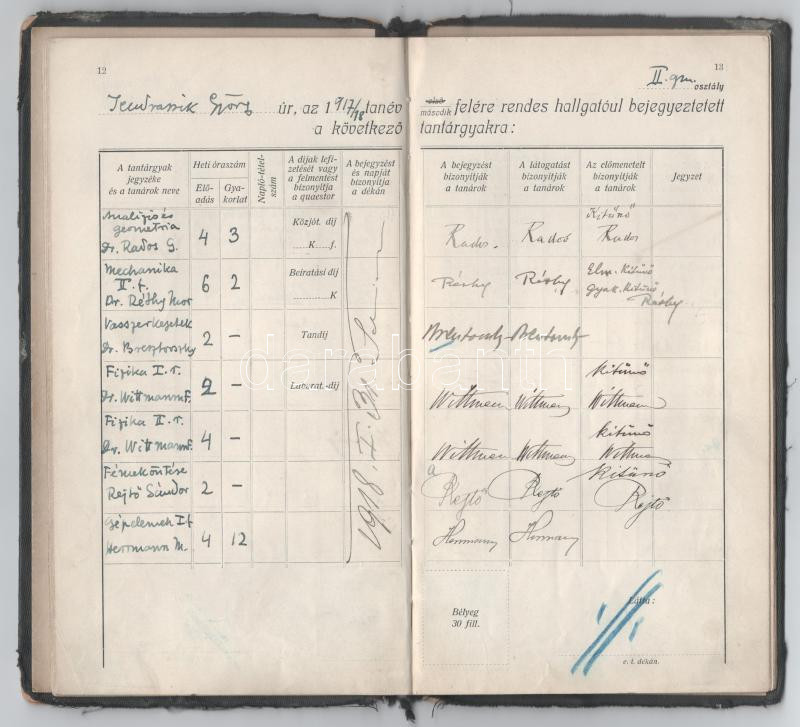 12
Jendrassik György úr, az 1917/18 tanév
a következő
A tantárgyak jegyzéke és a tanárok neve
Heti óraszám
Elő-adás
Gya-korlat
Napló-tétel-szám
A díjak lefi-zetését vagy a felmentést bizonyítja a quaestor
A bejegyzést és napját bizonyítja a dékán
Analízis és geometria
Dr. Rados G.
4 3
Közjót. díj
K f.
Mechanika II. f.
Dr. Réthy Mor
6 2
Beiratási díj
K
Vasszerkezetek
Dr. Bresztovszky
2 -
Tandíj
Fizika I. r.
Dr. Wittmann F.
2 -
Laborat.-díj
Fizika II. r.
Dr. Wittmann F.
4 -
Rejtő Sándor
2 -
Gépelemek I f
Herrmann M.
4 12
1918. II.
darabanth
13
II. gm. osztály
első
második felére rendes hallgatóul bejegyeztetett
tantárgyakra:
A bejegyzést bizonyítják a tanárok
A látogatást bizonyítják a tanárok
Az előmenetelt bizonyítják a tanárok
Jegyzet
Kitünő
Rados. Rados Rados
Elm. kitünő
gyak. kitünő
Réthy Réthy Réthy
Bresztovszky Bresztovszky
kitünő
Wittmann Wittmann Wittmann
kitünő
Wittmann Wittmann Wittmann
kitünő
Rejtő Rejtő Rejtő
Herrmann Herrmann
Bélyeg
30 fill.
Látta:
e. i. dékán.